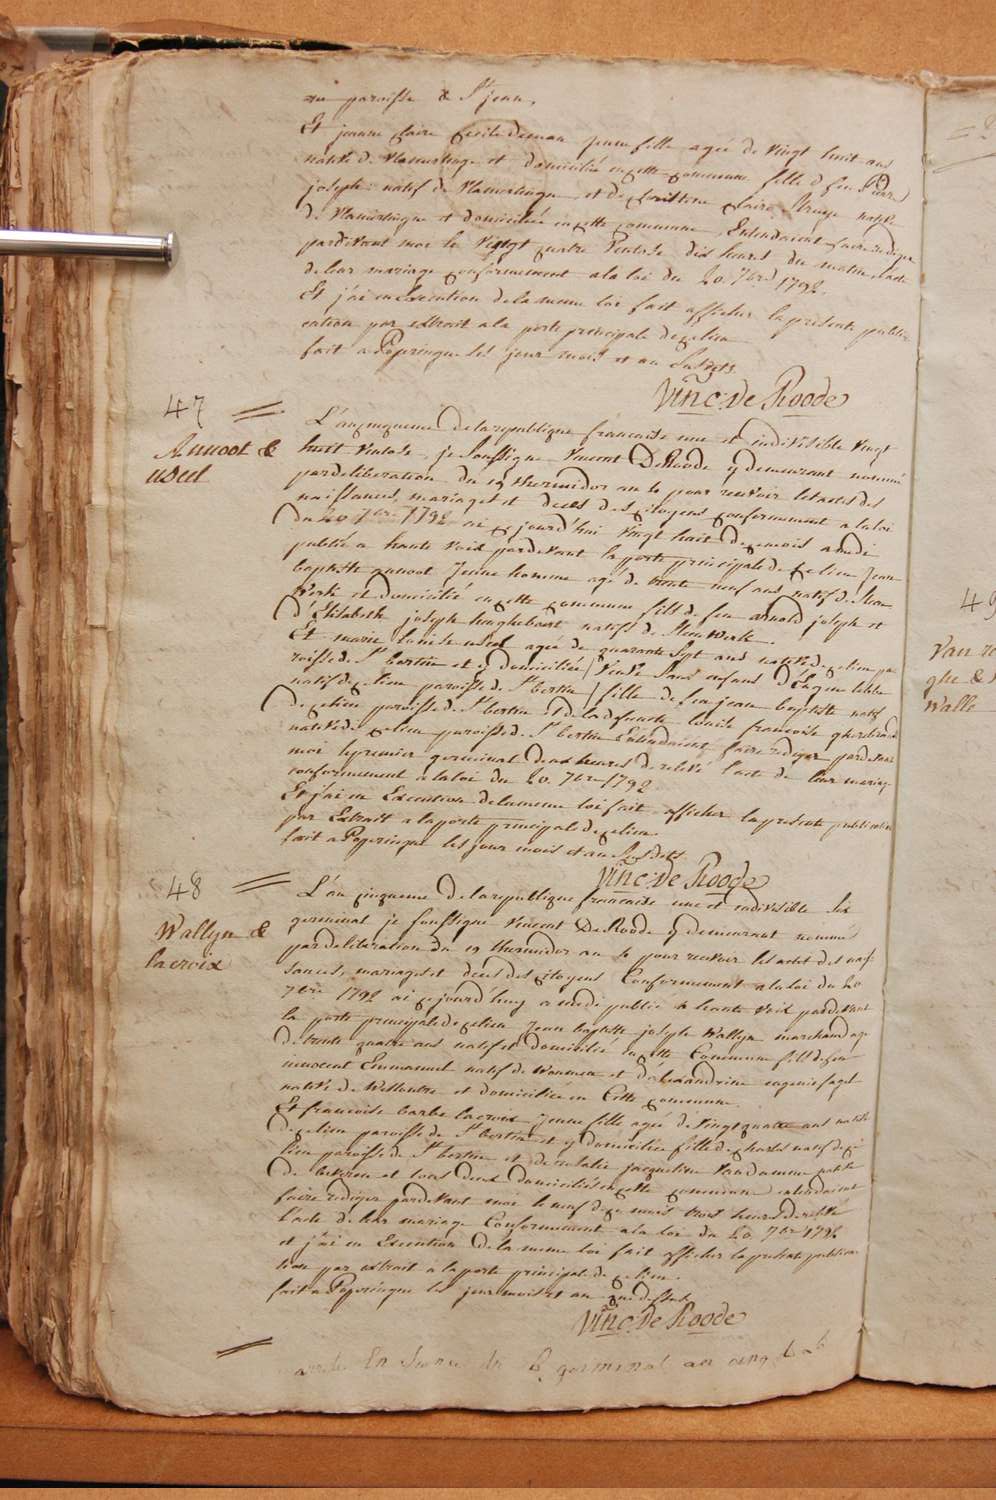 paroisse de St jean,
Et jeanne claire cecile deman jeune fille agée de vingt huit ans
native de Vlamertinge et domiciliée en cette commune fille d feu Pierre
joseph natif de Vlamertingue et de claire native
de Vlamertingue et domiciliée en cette commune, Entendaient faire rediger
pardevant moi le vingt quatre Ventose dix heures du matin l'acte
de leur mariage conformement a la loi du 20 7bre 1792.
Et j'ai en Execution de la meme loi fait afficher la presente publi-
cation par extrait a la porte principale de ce lieu
fait a Poperingue les jour mois et an Susdits.
Vinc: De Roode
47
Annoot &
useel
L'an cinqueme De la republique francaise une et indivisible vingt
huit ventose, je Soussigne Vincent DeRoode y demeurant nommé
par deliberation du 19 thermidor an 4 pour recevoir les actes des
naissances, mariages et deces des citoyens conformement a la loi
Du 20 7bre 1792 ai ce jourd'hui vingt huit de ce mois a midi
publié a haute voix pardevant la porte principale de ce lieu Jean
baptiste annoot Jeune homme agé de trente neuf ans natif de Steen
Werke et domicilié en cette commune fils de feu arnold joseph et
d'Elisabeth joseph natifs de Steenwerke.
Et marie louise useel agée de quarante Sept ans native de ce lieu pa-
roisse de St bertin et y domiciliée / Veuve Sans enfans d'Eugene
natif de ce lieu paroisse de St bertin / fille de feu jean baptiste natif
De ce lieu paroisse de St bertin et de la defunte louise francoise
native de ce lieu paroisse de St bertin Entendaient faire rediger pardevant
moi le premier germinal deux heures de relevé l'acte de leur mariage
conformement a la loi du 20 7bre 1792
Et j'ai en Execution de la meme loi fait afficher la presente publication
par Extrait a la porte principal de ce lieu.
fait a Poperingue les jour mois et an Susdits
Vinc: De Roode
48
Wallyn &
lacroix
L'an cinqueme De la republique francaise une et indivisible Six
germinal je soussigne Vincent DeRoode y demeurant nommé
par deliberation du 19 thermidor an 4 pour recevoir les actes des nais-
sances, mariages et deces des citoyens Conformement a la loi du 20
7bre 1792 ai ce jourd'huy a midi publié a haute voix pardevant
la porte principale de ce lieu Jean baptiste joseph Wallyn marchand agé
De trente quatre ans natif et domicilié en cette Commune fils de feu
innocent Emmanuel natif de et d'alexandrine eugenie
native de et domiciliée en Cette commune.
Et francoise barbe lacroix Jeune fille agée de vingt quatre ans native
De ce lieu paroisse de St bertin et y domiciliée fille de charles natif de ce
lieu paroisse de St bertin et de natalie jacqueline Vandamme native
De et tous deux domiciliés en cette commune entendaient
faire rediger pardevant moi le neuf de ce mois trois heures de relevé
l'acte de leur mariage Conformement a la loi du 20 7bre 1792
et j'ai en Execution de la meme loi fait afficher la presente publica-
tion par extrait a la porte principale de ce lieu.
fait a Poperingue les jour mois et an que dessus
Vinc: De Roode
En du 6 germinal an cinq
49
Van re
ghe &
Walle